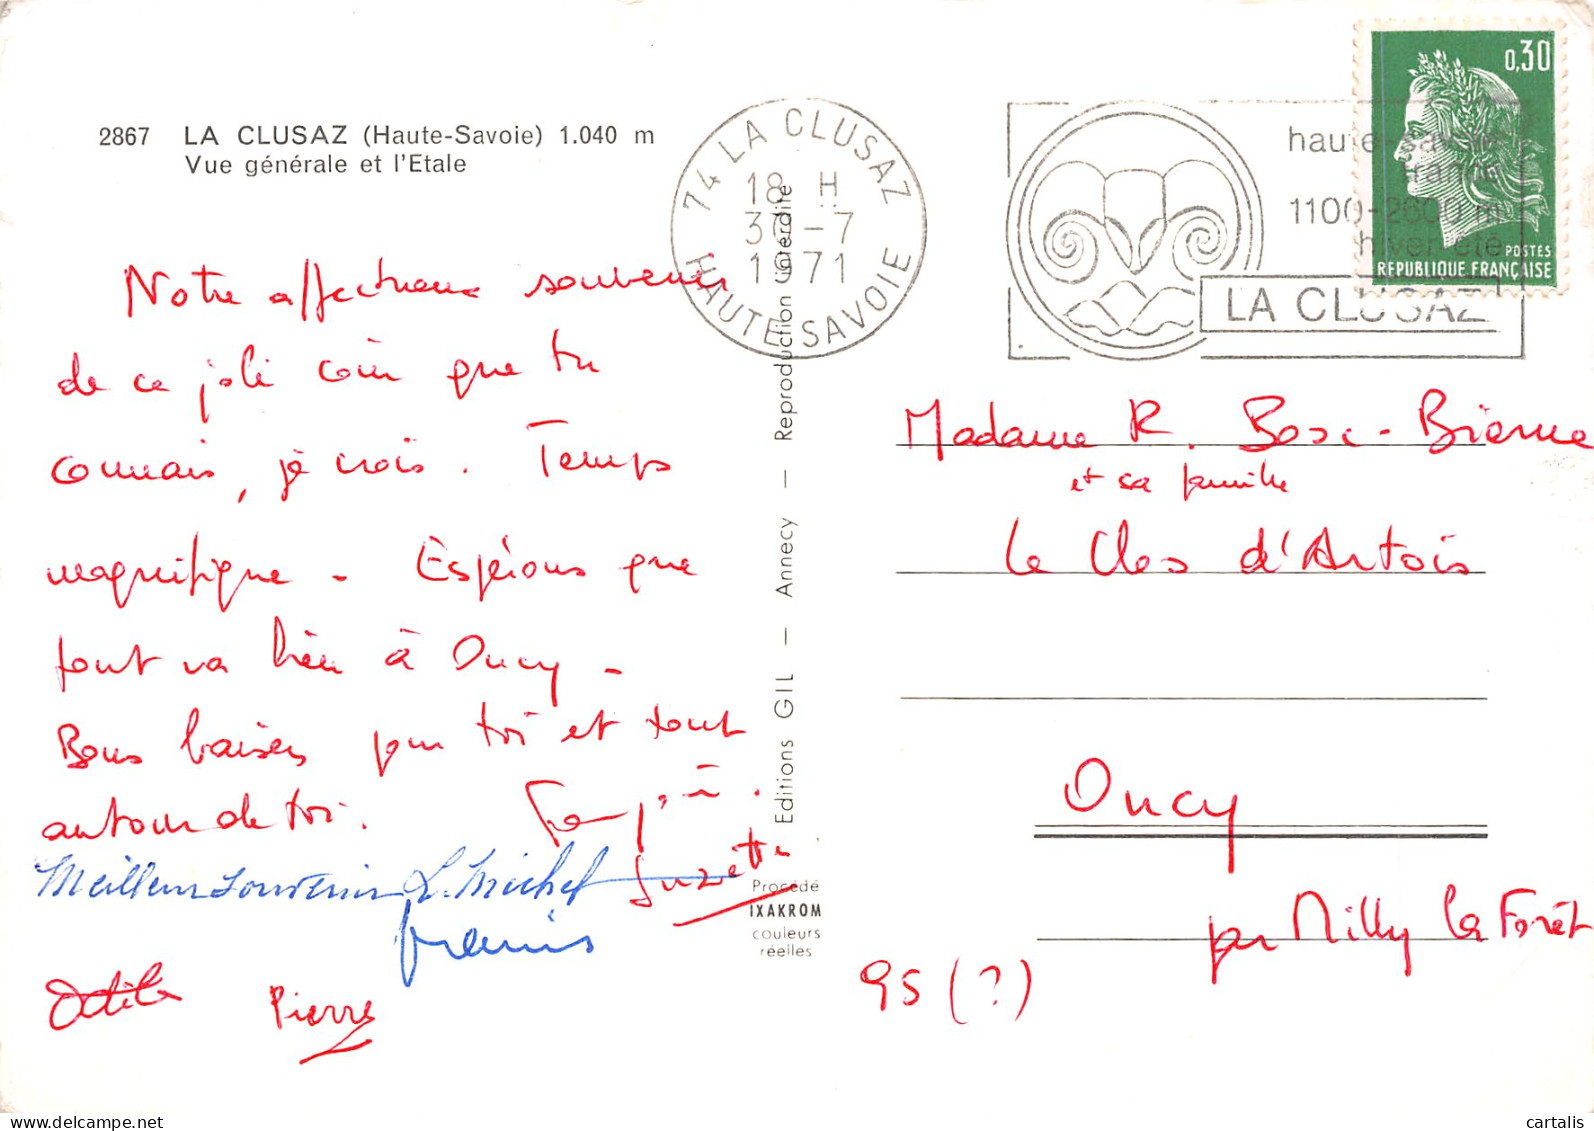 2867 LA CLUSAZ (Haute-Savoie) 1.040 m
Vue générale et l'Etale
74 LA CLUSAZ
18 H
30-7
1971
HAUTE-SAVOIE
haute savoie
france
1100-2600 m
hiver été
LA CLUSAZ
0,30
POSTES
REPUBLIQUE FRANÇAISE
Notre affectueux souvenir
de ce joli coin que tu
connais, je crois. Temps
magnifique - Espérons que
tout va bien à Oncy -
Bons baisers pour toi et tout
autour de toi.
Suzette
Meilleur souvenir L. Michel
Francis
Odile Pierre
Editions GIL — Annecy — Reproduction interdite
Procédé
IXAKROM
couleurs
réelles
Madame R. Bosc-Bierne
et sa famille
Le Clos d'Artois
Oncy
par Milly la Forêt
95 (?)
cartalis
delcampe.net